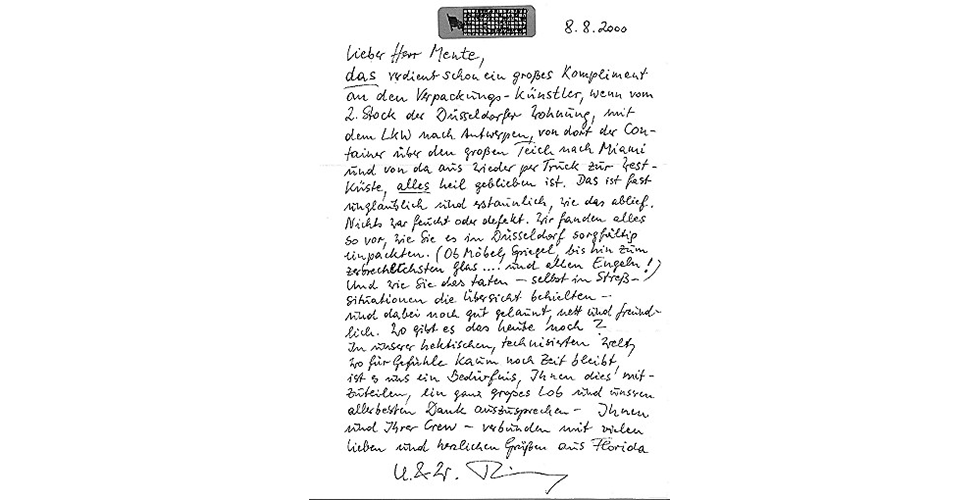 8.8.2000
Lieber Herr Mente,
das verdient schon ein großes Kompliment
an den Verpackungs-Künstler, wenn vom
2. Stock der Düsseldorfer Wohnung, mit
dem LKW nach Antwerpen, von dort der Con-
tainer über den großen Teich nach Miami
und von da aus wieder per Truck zur West-
Küste, alles heil geblieben ist. Das ist fast
unglaublich und erstaunlich, wie das ablief.
Nichts war feucht oder defekt. Wir fanden alles
so vor, wie Sie es in Düsseldorf sorgfältig
einpackten. (Ob Möbel, Spiegel, bis hin zum
zerbrechlichsten Glas .... und allen Engeln!)
Und wie Sie das taten – selbst in Streß-
situationen die Übersicht behielten –
und dabei noch gut gelaunt, nett und freund-
lich. Wo gibt es das heute noch?
In unserer hektischen, technisierten Welt,
wo für Gefühle kaum noch Zeit bleibt,
ist es uns ein Bedürfnis, Ihnen dies mit-
zuteilen, ein ganz großes Lob und unseren
allerbesten Dank auszusprechen – Ihnen
und Ihrer Crew – verbunden mit vielen
lieben und herzlichen Grüßen aus Florida
U. & W.